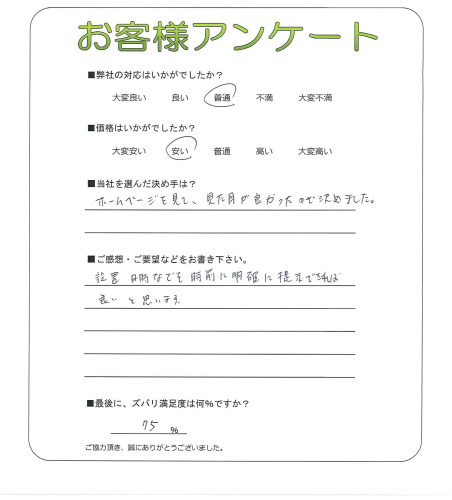 お客様アンケート
■弊社の対応はいかがでしたか？
大変良い 良い 普通 不満 大変不満
■価格はいかがでしたか？
大変安い 安い 普通 高い 大変高い
■当社を選んだ決め手は？
ホームページを見て、見た目が良かったので決めました。
■ご感想・ご要望などをお書き下さい。
設置日時なども 明確に提示できれば
良いと思います
■最後に、ズバリ満足度は何％ですか？
75 ％
ご協力頂き、誠にありがとうございました。